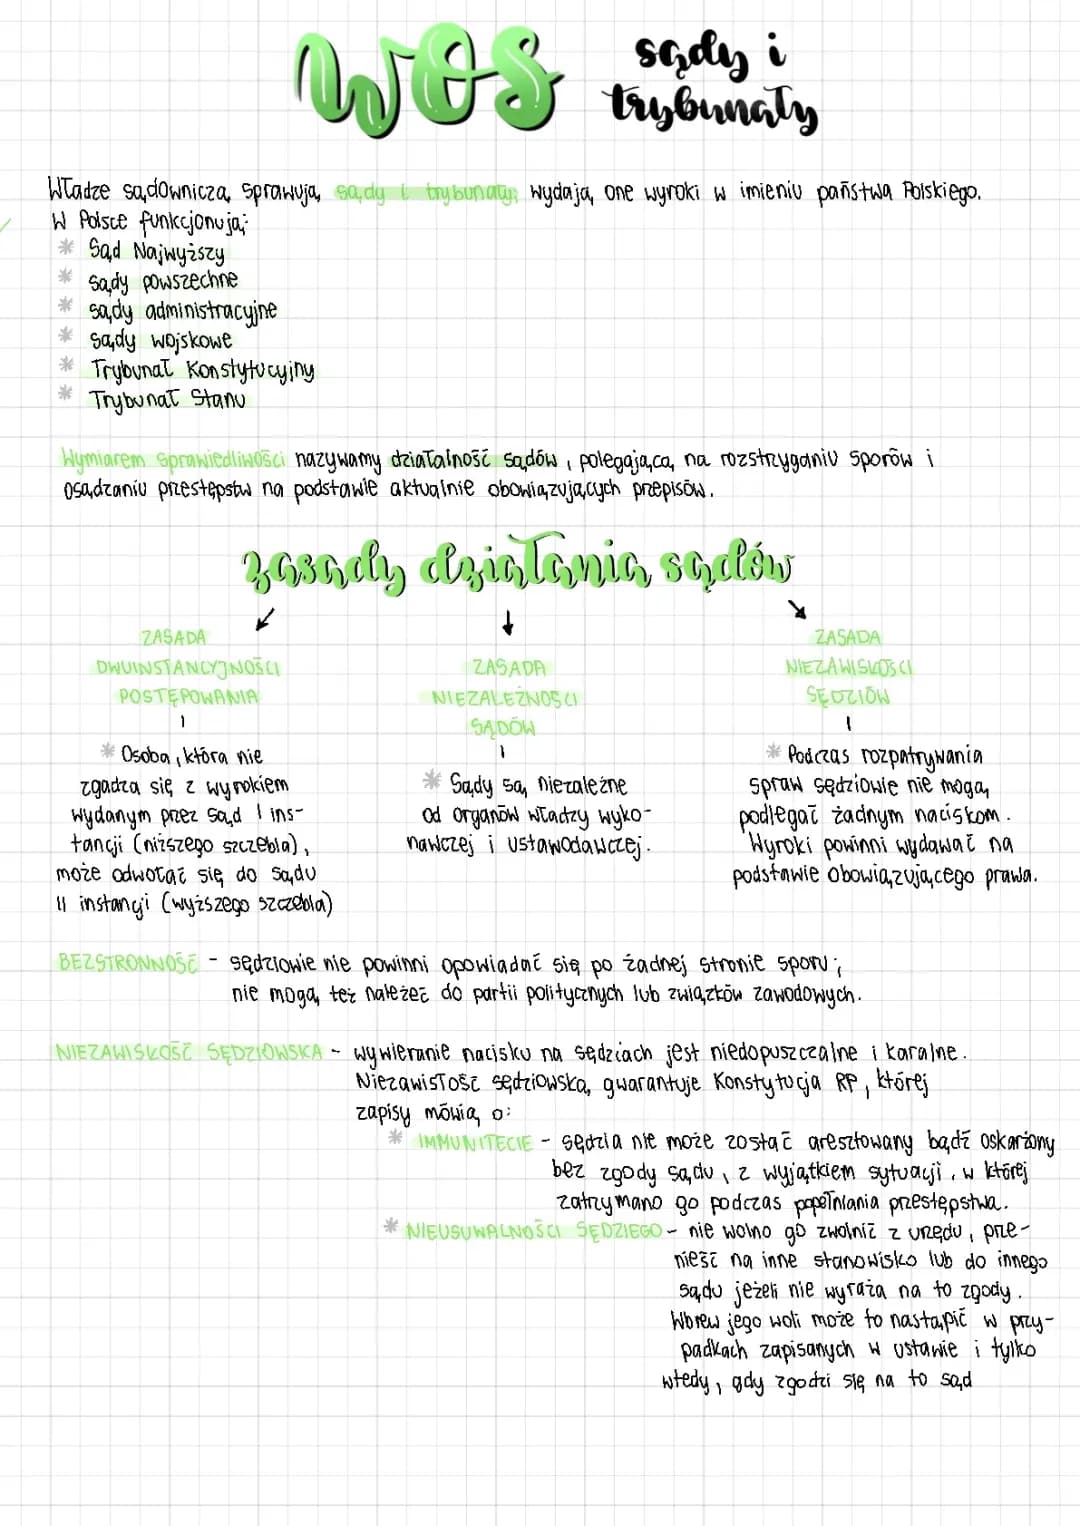 WOS
sądy i
trybunały
Władze sądowniczą sprawują sądy i trybunały; wydają one wyroki w imieniu państwa Polskiego.
W Polsce funkcjonują:
* Sąd Najwyższy
* sądy powszechne
* sądy administracyjne
* sądy wojskowe
* Trybunał Konstytucyjny
* Trybunał Stanu
Wymiarem sprawiedliwości nazywamy działalność sądów, polegającą na rozstrzyganiu sporów i
osądzaniu przestępstw na podstawie aktualnie obowiązujących przepisów.
zasady działania sądów
ZASADA
DWUINSTANCYJNOŚCI
POSTĘPOWANIA
* Osoba, która nie
zgadza się z wyrokiem
wydanym przez sąd I ins-
tancji (niższego szczebla),
może odwołać się do sądu
II instancji (wyższego szczebla)
ZASADA
NIEZALEŻNOŚCI
SĄDÓW
* Sądy są niezależne
od organów władzy wyko-
nawczej i ustawodawczej.
ZASADA
NIEZAWISŁOŚCI
SĘDZIÓW
* Podczas rozpatrywania
spraw sędziowie nie mogą
podlegać żadnym naciskom.
Wyroki powinni wydawać na
podstawie obowiązującego prawa.
BEZSTRONNOŚĆ - sędziowie nie powinni opowiadać się po żadnej stronie sporu;
nie mogą też należeć do partii politycznych lub związków zawodowych.
NIEZAWISŁOŚĆ SĘDZIOWSKA - wywieranie nacisku na sędziach jest niedopuszczalne i karalne.
Niezawisłość sędziowską gwarantuje Konstytucja RP, której
zapisy mówią o:
* IMMUNITECIE - sędzia nie może zostać aresztowany bądź oskarżony
bez zgody sądu, z wyjątkiem sytuacji, w której
zatrzymano go podczas popełniania przestępstwa.
* NIEUSUWALNOŚCI SĘDZIEGO - nie wolno go zwolnić z urzędu, prze-
nieść na inne stanowisko lub do innego
sądu jeżeli nie wyraża na to zgody.
Wbrew jego woli może to nastąpić w przy-
padkach zapisanych w ustawie i tylko
wtedy, gdy zgodzi się na to sąd